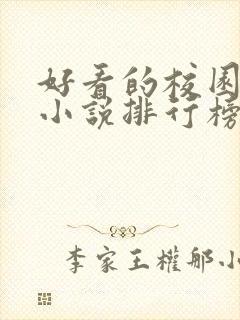 好看的校园
小说排行榜
李家王權那小